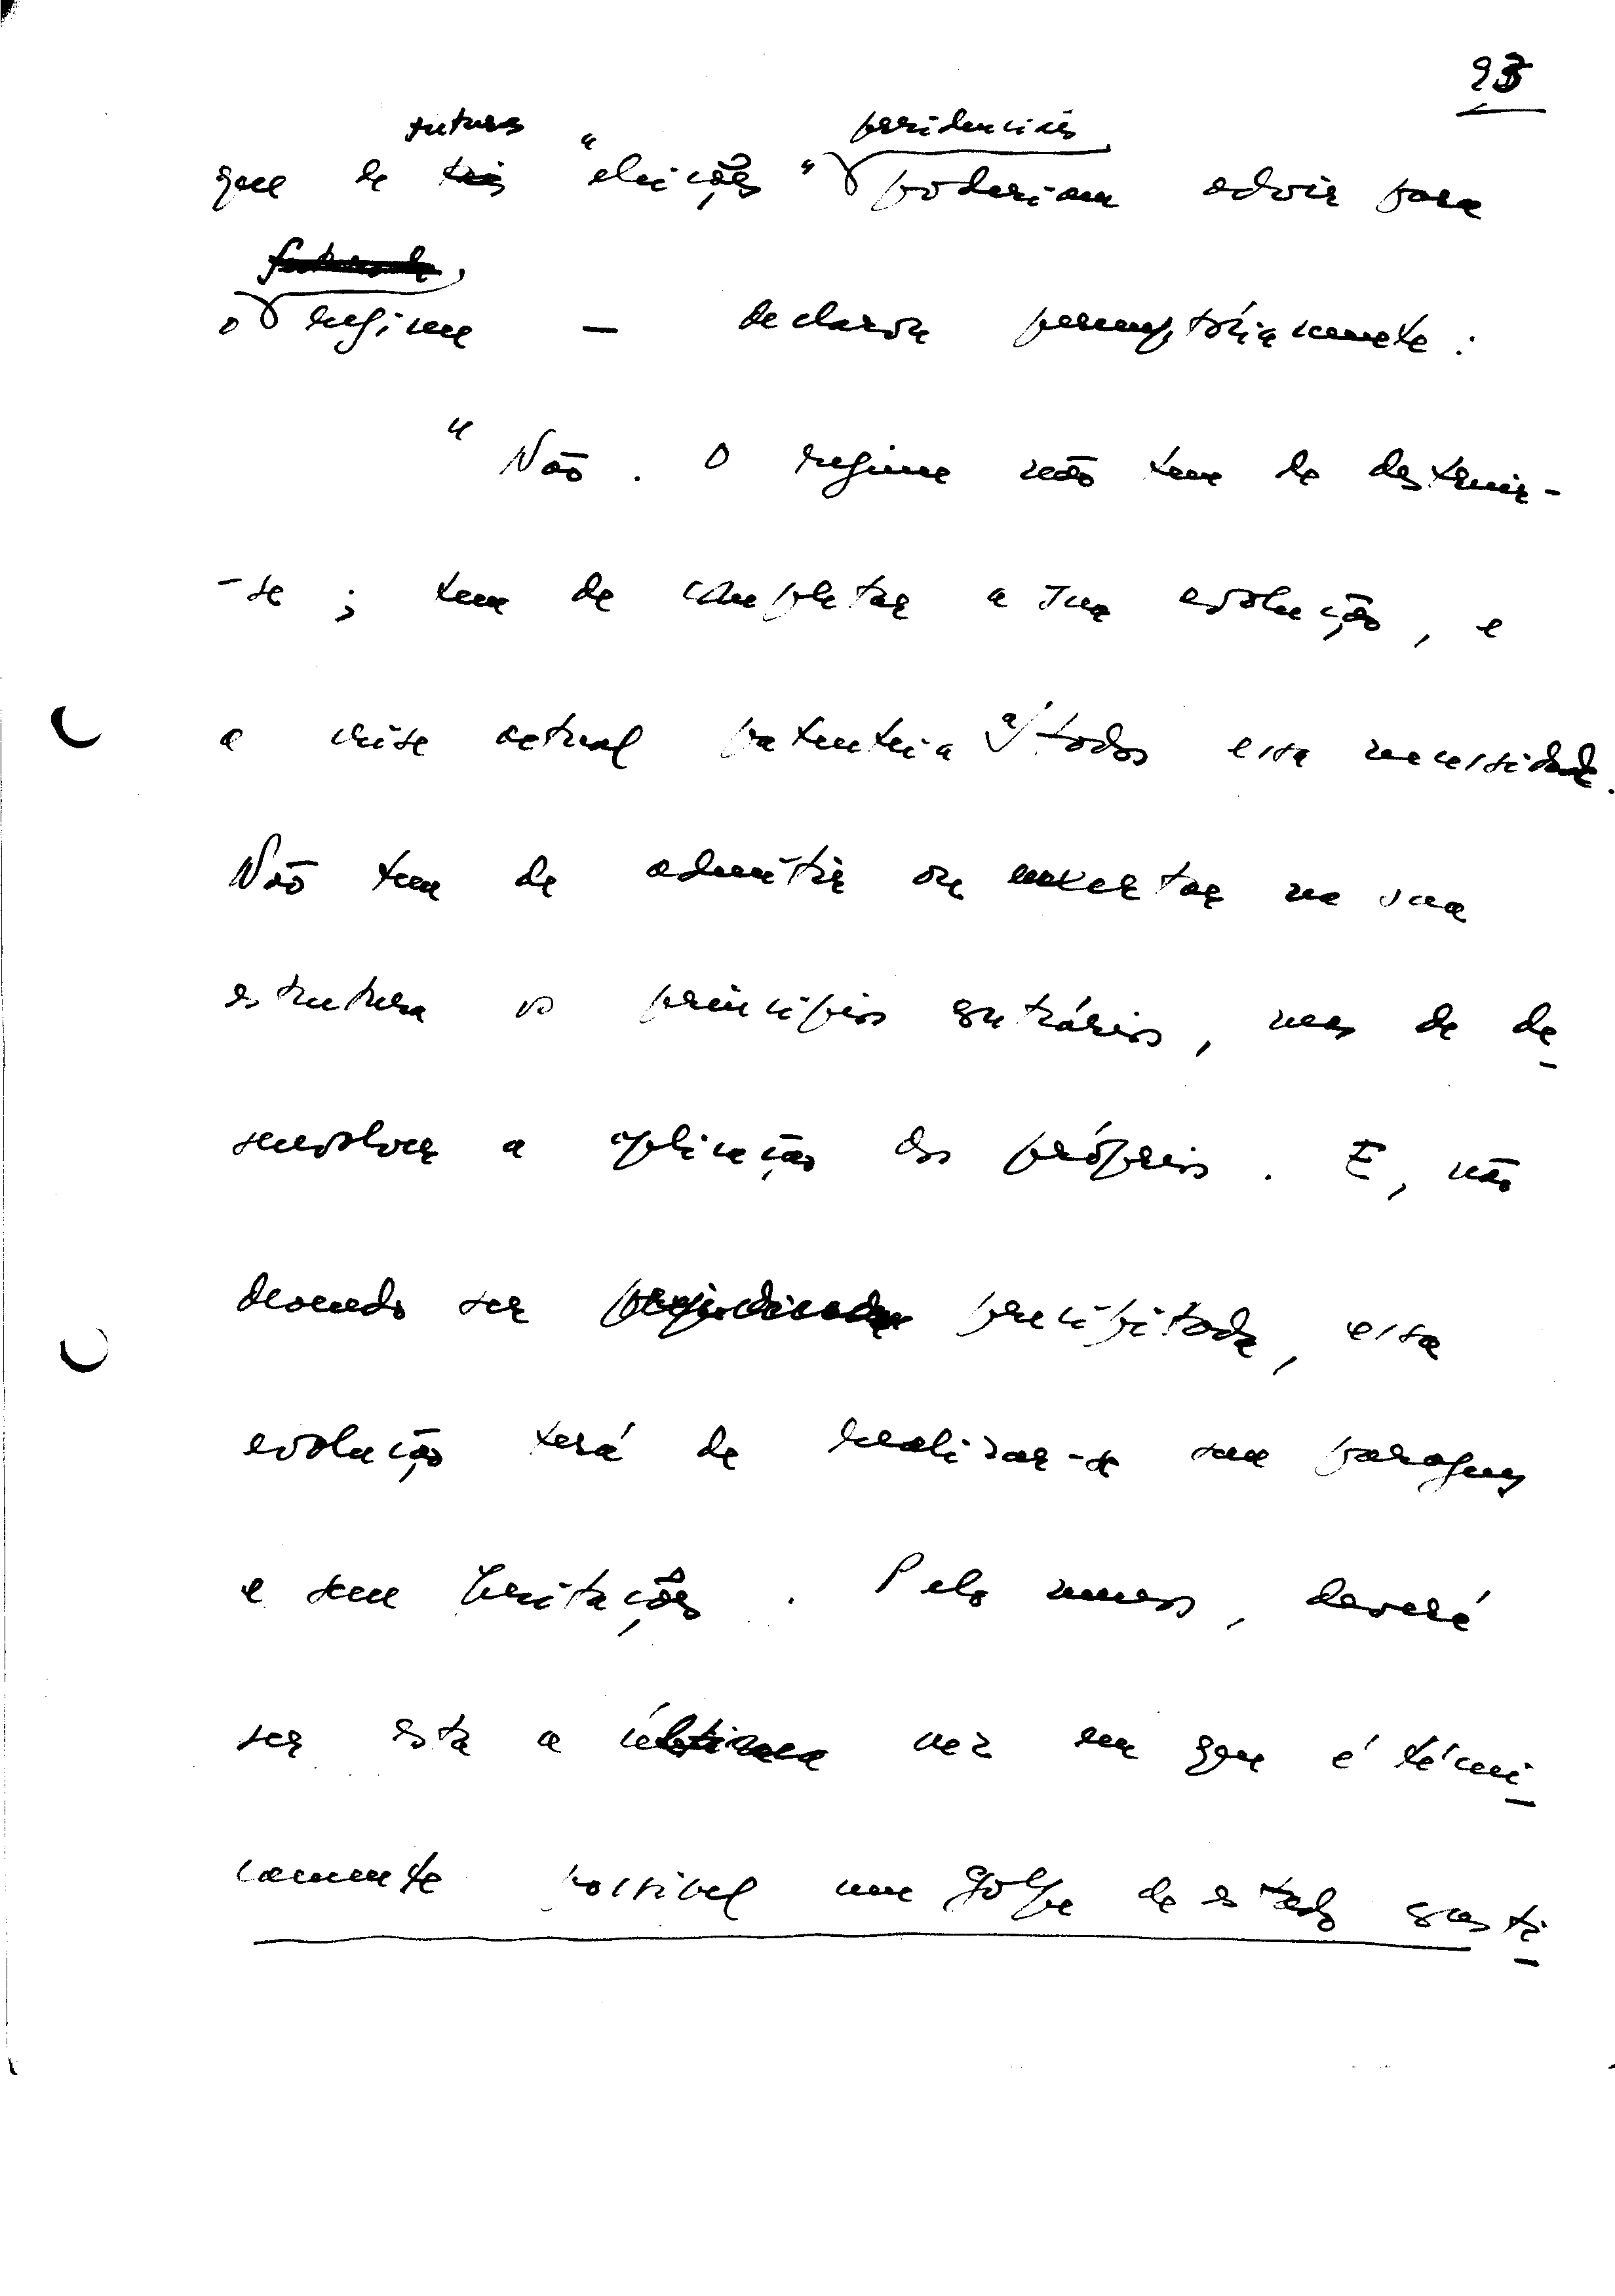 93
futuras presidenciais
que de tais "eleições" poderiam advir para
o regime — declarou peremptóriamente:
"Não. O regime não tem de destruir-
-se; tem de completar a sua evolução, e
a crise actual patenteia a todos essa necessidade.
Não tem de admitir ou enxertar na sua
estrutura os princípios contrários, mas de de-
senvolver a aplicação dos próprios. E, não
devendo ser precipitada, essa
evolução terá de realizar-se sem paragens
e sem hesitações. Pelo menos, deverá
ser esta a última vez em que é técni-
camente possivel um golpe de estado consti-